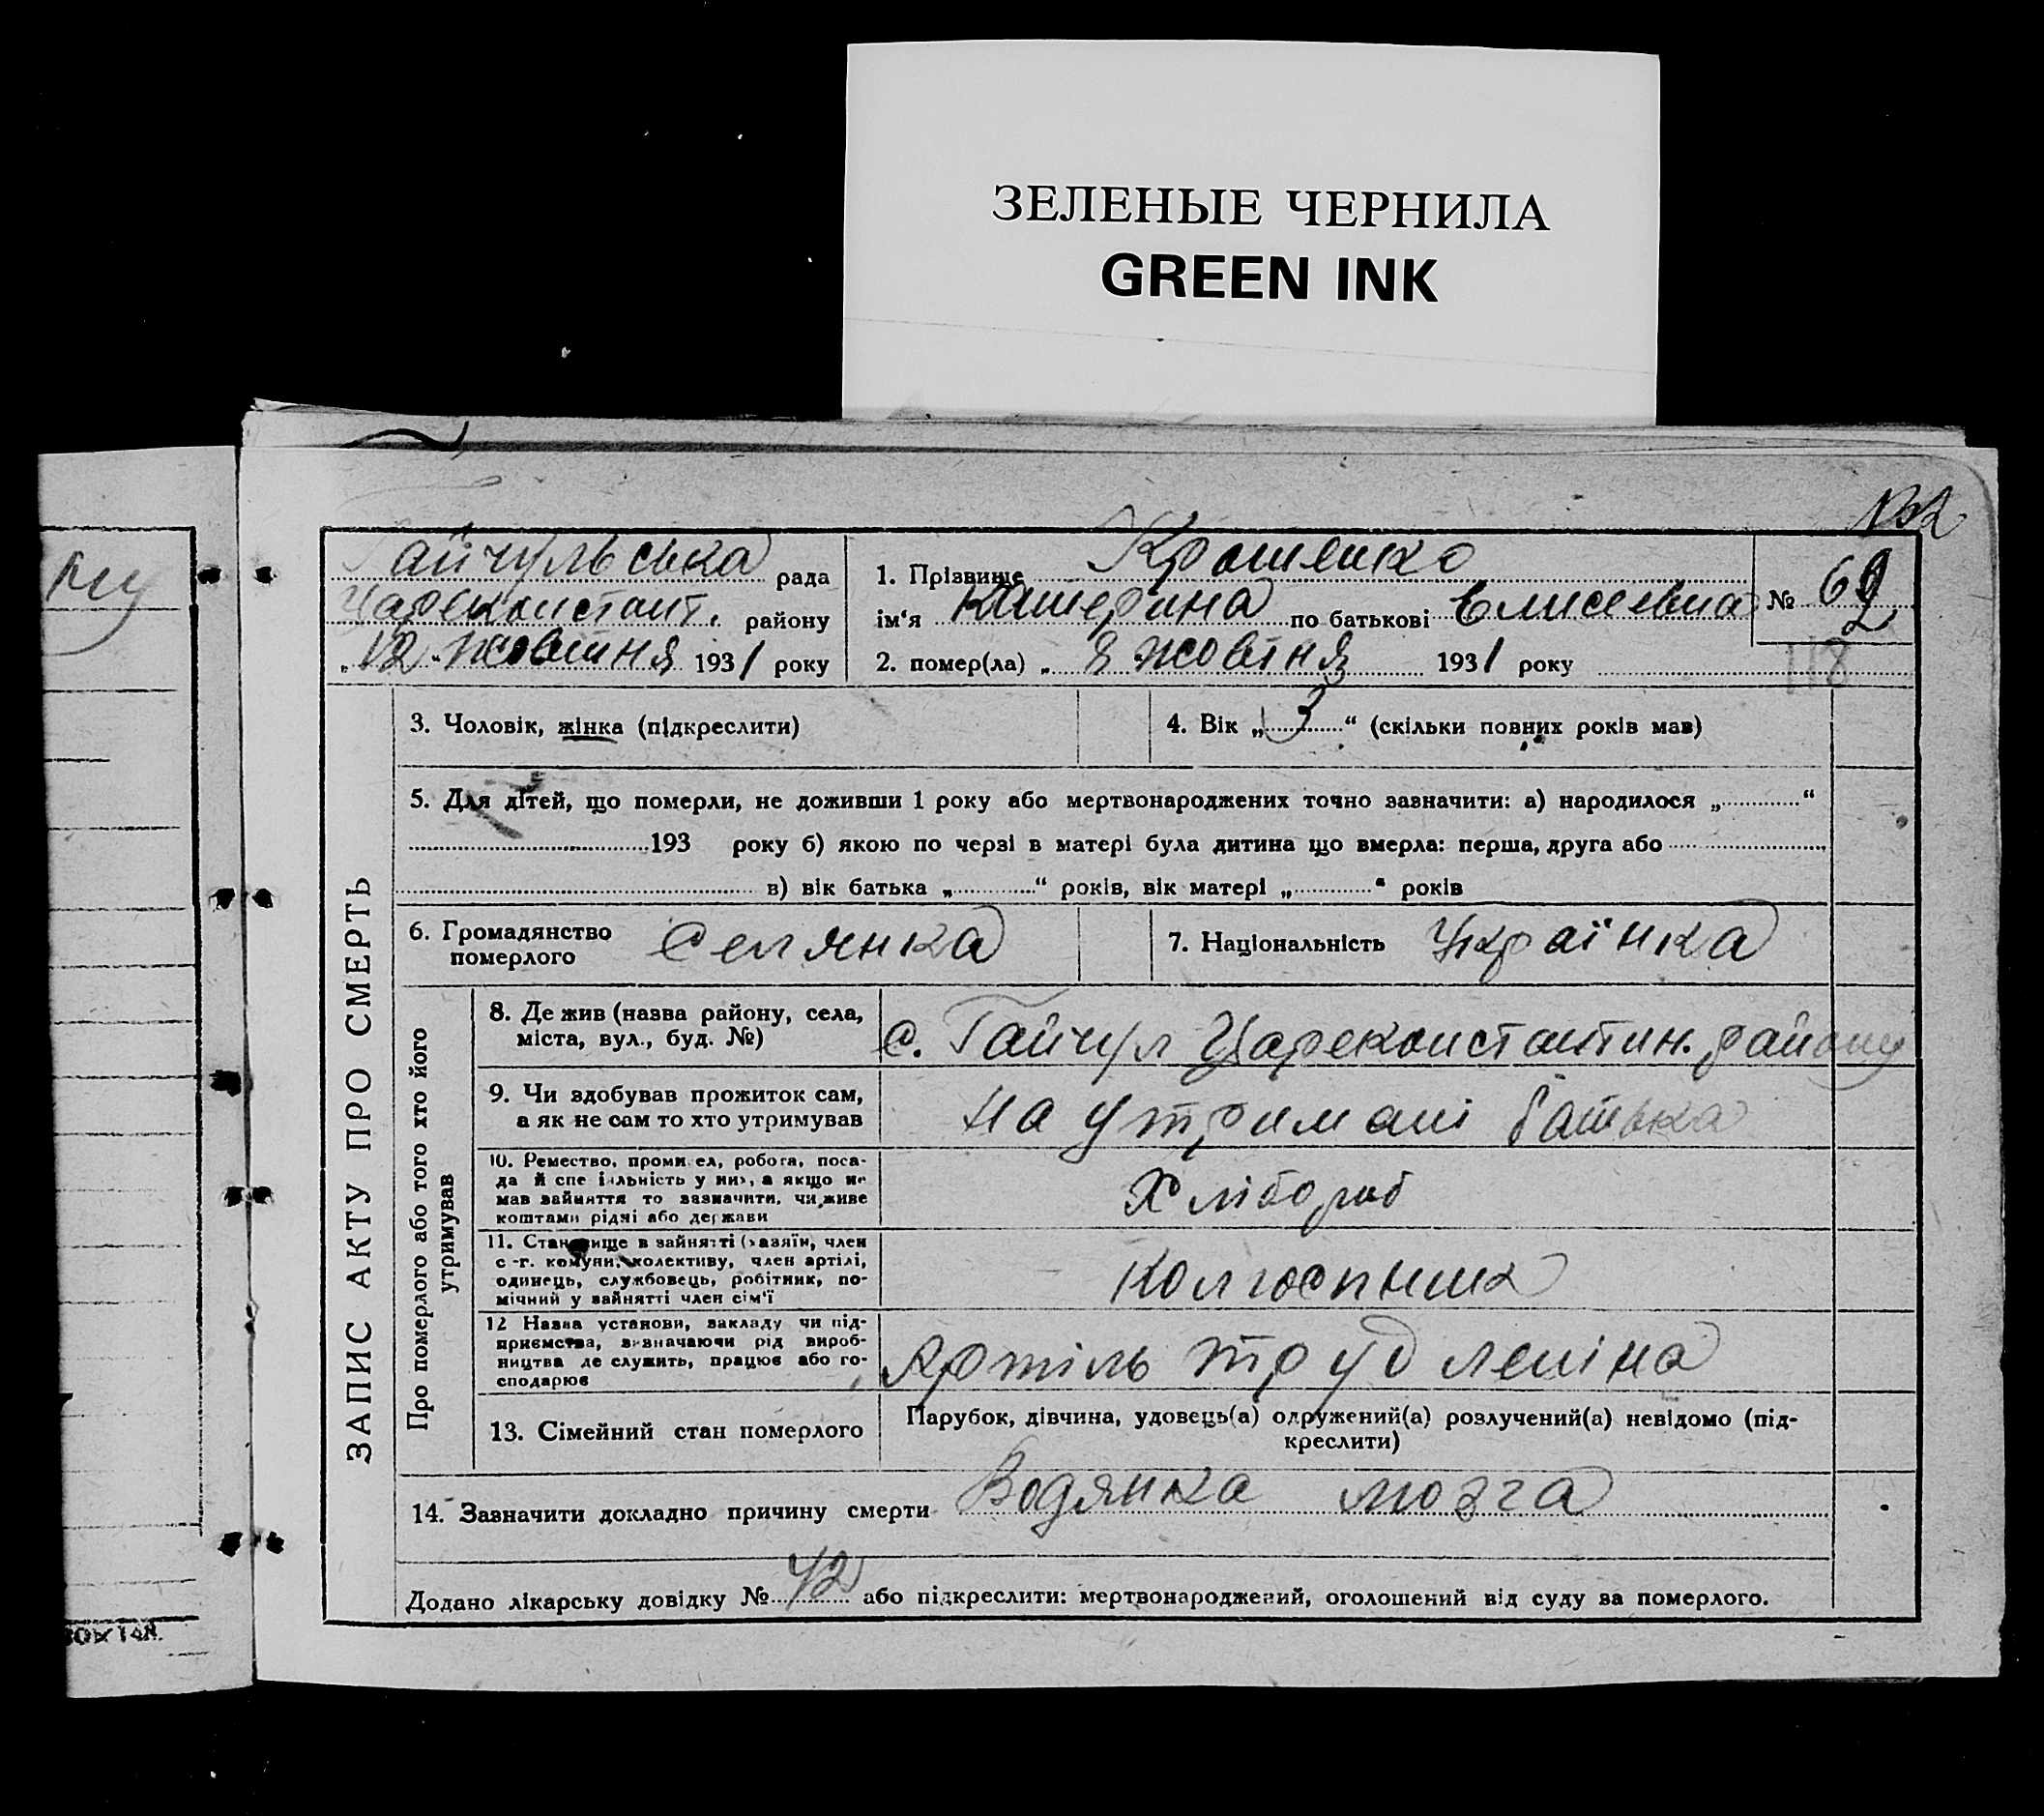 ЗЕЛЕНЫЕ ЧЕРНИЛА
GREEN INK
Гайчульська рада
Цареконстант. району
„12“ жовтня 1931 року
1. Прізвище
ім‘я Катерина по батькові Елисеевна
2. помер(ла) „ 8 жовтня 1931 року
№ 62
118
ЗАПИС АКТУ ПРО СМЕРТЬ
3. Чоловік, жінка (підкреслити)
4. Вік „ 3 “ (скільки повних років мав)
5. Для дітей, що померли, не доживши 1 року або мертвонароджених точно зазначити: а) народилося „ “
193 року б) якою по черзі в матері була дитина що вмерла: перша, друга або
в) вік батька „ “ років, вік матері „ “ років
6. Громадянство
померлого Селянка
7. Національність Українка
Про померлого або того хто його
утримував
8. Де жив (назва району, села,
міста, вул., буд. №)
с. Гайчул Цареконстантин. району
9. Чи здобував прожиток сам,
а як не сам то хто утримував
на утримані батька
10. Ремество, промисел, робота, поса-
да й спеціяльність у них, а якщо не
мав зайняття то зазначити, чи живе
коштами рідні або держави
Хлібороб
11. Становище в зайнятті (хазяїн, член
с.-г. комуни, колективу, член артілі,
одинець, службовець, робітник, по-
мічний у зайнятті член сім‘ї
Колгоспник
12 Назва установи, закладу чи під-
приємства, визначаючи рід вироб-
ництва де служить, працює або го-
сподарює
Артіль труд леніна
13. Сімейний стан померлого
Парубок, дівчина, удовець(а) одружений(а) розлучений(а) невідомо (під-
креслити)
14. Зазначити докладно причину смерти Водянка мозга
Додано лікарську довідку № 42 або підкреслити: мертвонароджений, оголошений від суду за померлого.